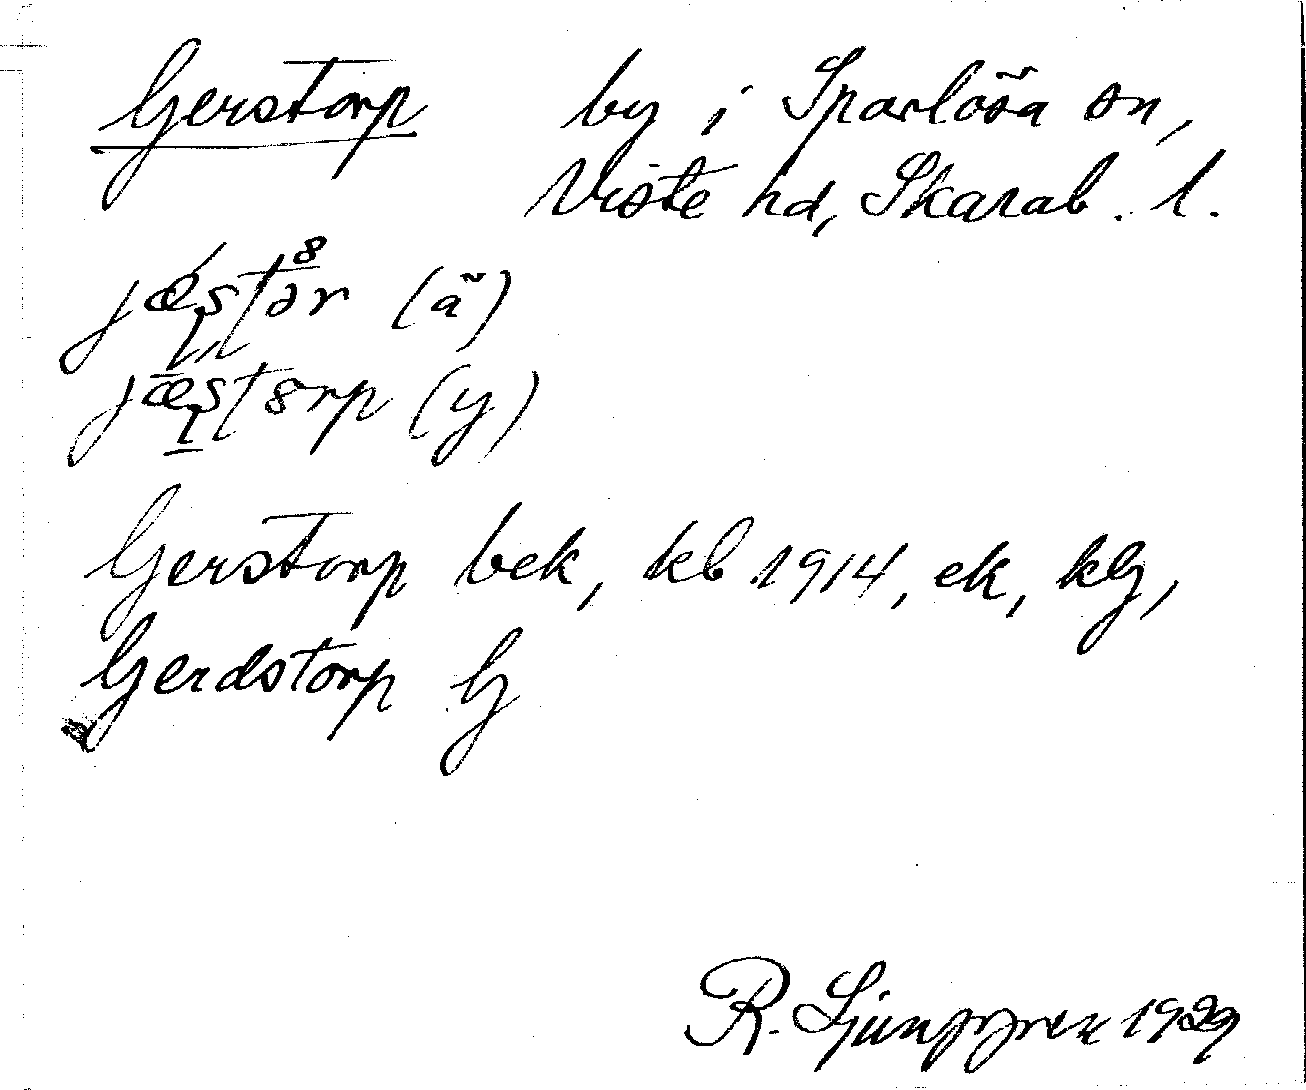 Gerstorp by i Sparlösa sn,
Viste hd, Skarab. l.
(ä)
(y)
Gerstorp bek, kb 1914, ek, kG,
Gerdstorp G
R. Ljunggren 1929